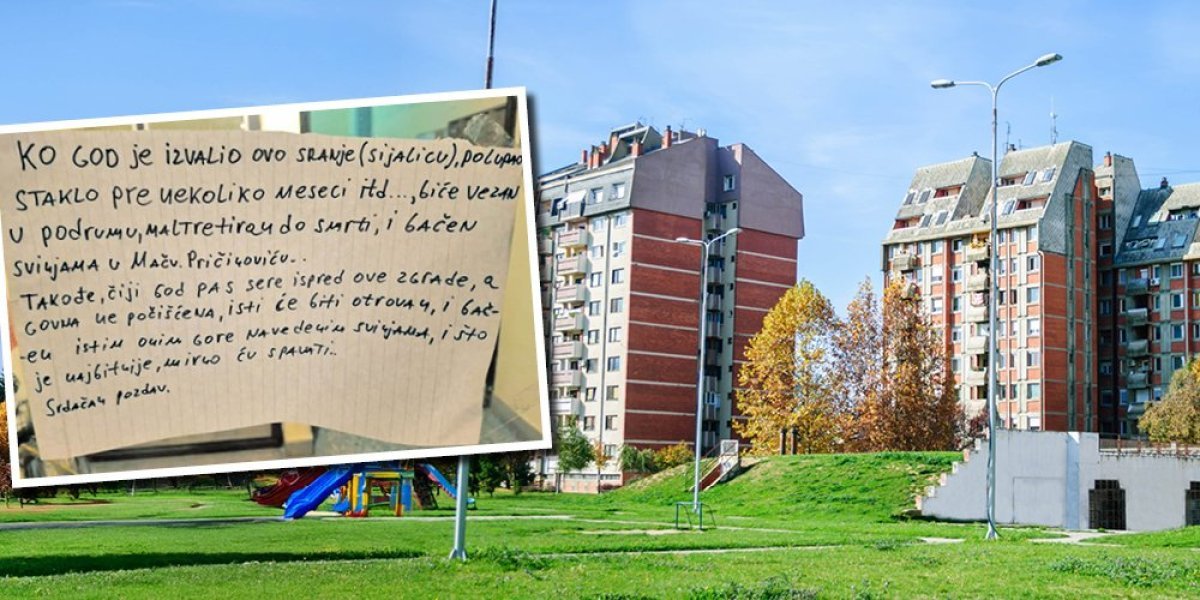 KO GOD je IZVALIO OVO SRANJE (SIJALICU), POLUPAO
STAKLO PRE NEKOLIKO MESECI itd..., biće VEZAN
U PODRUMU, MALTRETIRAN do SMRTI, I BAČEN
SVINJAMA U MAČV. PRIČINOVIĆU..
TAKOĐE, čiji GOD PAS SERE ISPRED OVE ZGRADE, A
GOVNA NE POČIŠĆENA, ISTI ĆE BITI OTROVAN, I BAČ-
EN ISTIM ONIM GORE NAVEDENIM SVINJAMA, I ŠTO
je NAJBITNIJE, MIRNO ĆU SPAVATI..
SRDAČAN POZDAV.